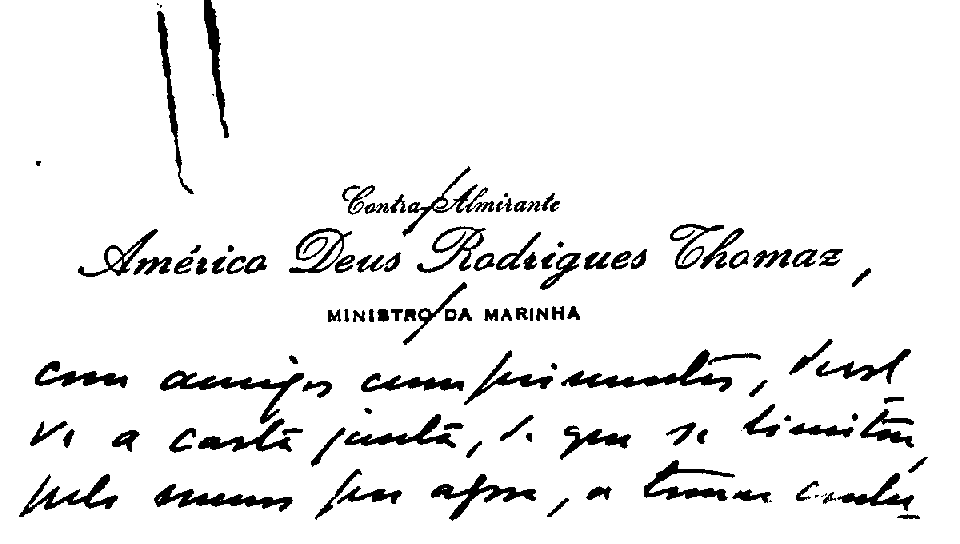 Contra-Almirante
Américo Deus Rodrigues Thomaz,
MINISTRO DA MARINHA
com amigos cumprimentos, devol
ve a carta junta, de que se limitou,
pelo menos por agora, a tomar conhe